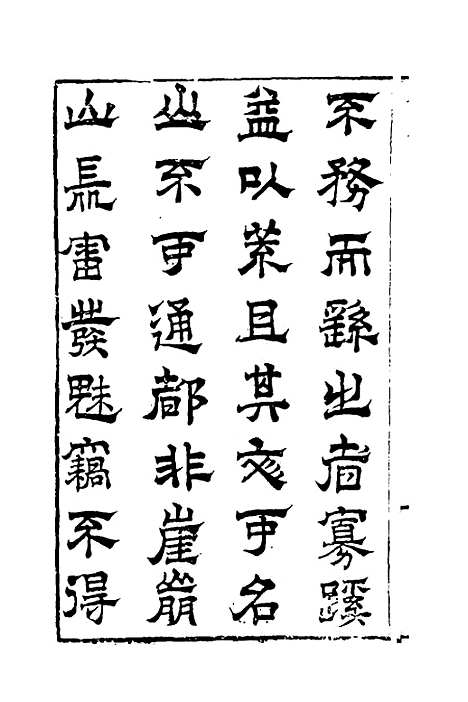 不務而繇之者寡蹊
益以荒且其文可名
山不可通都非崖崩
山長雷發魅竊不得